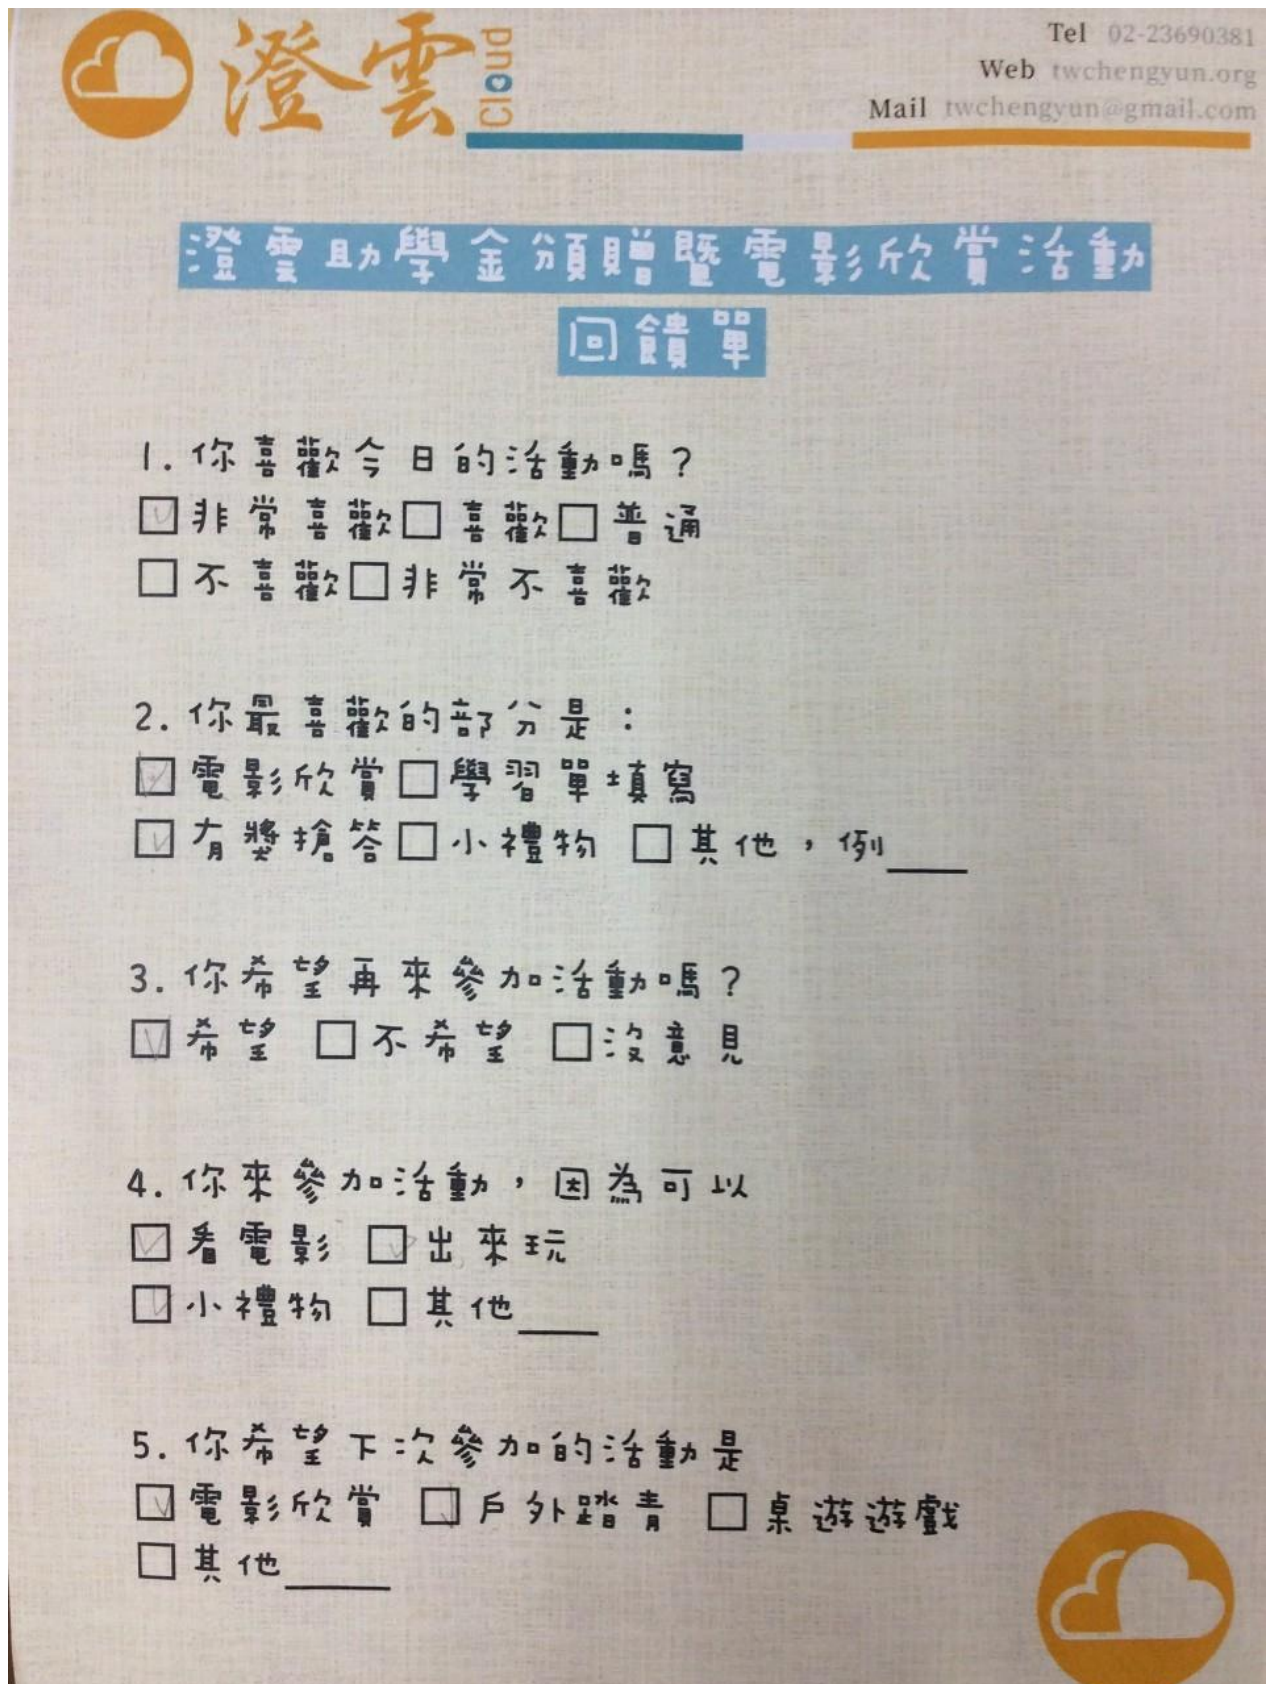 澄雲 Cloud
Tel 02-23690381
Web twchengyun.org
Mail twchengyun@gmail.com
澄雲助學金頒贈暨電影欣賞活動
回饋單
1. 你喜歡今日的活動嗎?
☑非常喜歡□喜歡□普通
□不喜歡□非常不喜歡
2. 你最喜歡的部分是:
☑電影欣賞□學習單填寫
☑有獎搶答□小禮物 □其他,例____
3. 你希望再來參加活動嗎?
☑希望 □不希望 □沒意見
4. 你來參加活動,因為可以
☑看電影 ☑出來玩
☑小禮物 □其他____
5. 你希望下次參加的活動是
☑電影欣賞 ☑戶外踏青 □桌遊遊戲
□其他____